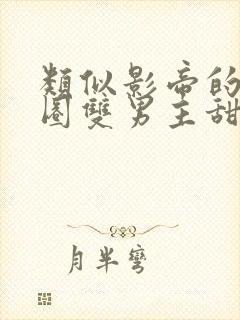 類似影帝的
圈雙男主甜
月半彎